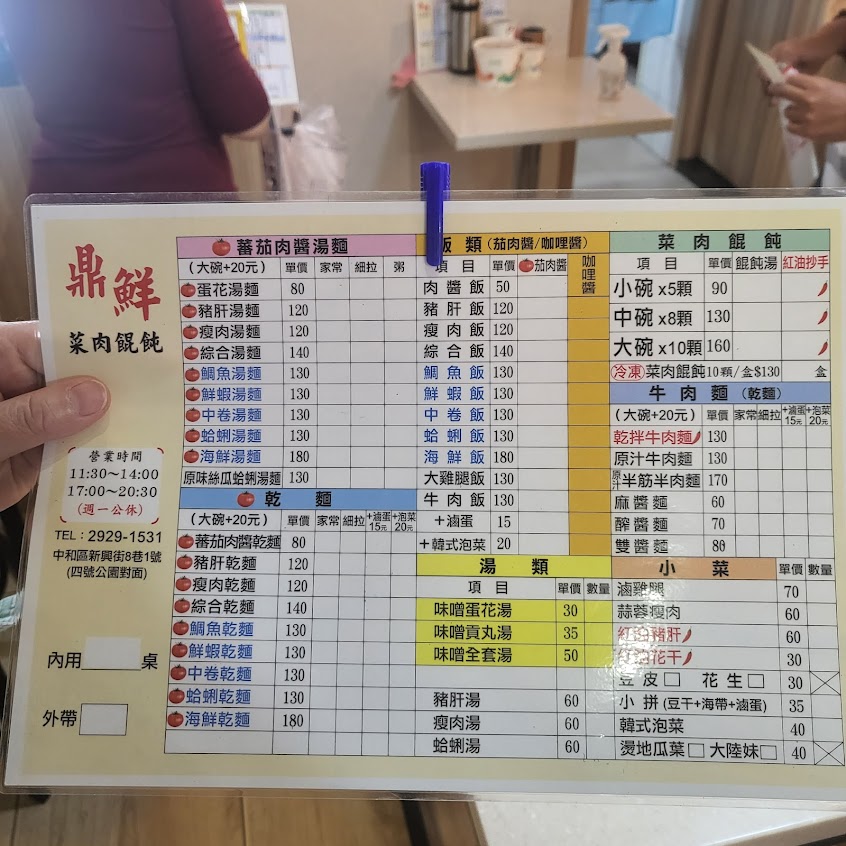 鼎鮮
菜肉餛飩
營業時間
11:30～14:00
17:00～20:30
(週一公休)
TEL：2929-1531
中和區新興街8巷1號
(四號公園對面)
內用 桌
外帶
蕃茄肉醬湯麵
(大碗+20元) 單價 家常 細拉 粥
蛋花湯麵 80
豬肝湯麵 120
瘦肉湯麵 120
綜合湯麵 140
鯛魚湯麵 130
鮮蝦湯麵 130
中卷湯麵 130
蛤蜊湯麵 130
海鮮湯麵 180
原味絲瓜蛤蜊湯麵 130
乾麵
(大碗+20元) 單價 家常 細拉 +滷蛋15元 +泡菜20元
蕃茄肉醬乾麵 80
豬肝乾麵 120
瘦肉乾麵 120
綜合乾麵 140
鯛魚乾麵 130
鮮蝦乾麵 130
中卷乾麵 130
蛤蜊乾麵 130
海鮮乾麵 180
飯類(茄肉醬/咖哩醬)
項目 單價 茄肉醬 咖哩醬
肉醬飯 50
豬肝飯 120
瘦肉飯 120
綜合飯 140
鯛魚飯 130
鮮蝦飯 130
中卷飯 130
蛤蜊飯 130
海鮮飯 180
大雞腿飯 130
牛肉飯 130
+滷蛋 15
+韓式泡菜 20
湯類
項目 單價 數量
味噌蛋花湯 30
味噌貢丸湯 35
味噌全套湯 50
豬肝湯 60
瘦肉湯 60
蛤蜊湯 60
菜肉餛飩
項目 單價 餛飩湯 紅油抄手
小碗x5顆 90
中碗x8顆 130
大碗x10顆 160
冷凍菜肉餛飩10顆/盒$130 盒
牛肉麵(乾麵)
(大碗+20元) 單價 家常 細拉 +滷蛋15元 +泡菜20元
乾拌牛肉麵 130
原汁牛肉麵 130
原汁半筋半肉麵 170
麻醬麵 60
醡醬麵 70
雙醬麵 80
小菜 單價 數量
滷雞腿 70
蒜蓉瘦肉 60
紅油豬肝 60
紅油花干 30
豆皮□ 花生□ 30
小拼(豆干+海帶+滷蛋) 35
韓式泡菜 40
燙地瓜菜□ 大陸妹□ 40